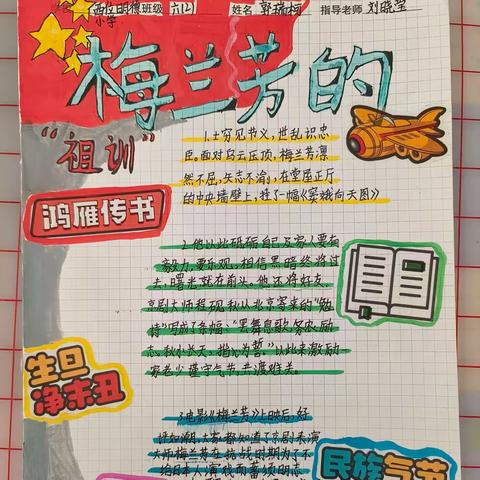 西位明德小学 班级 六(2) 姓名 郭瑞柯 指导老师 刘晓莹
梅兰芳的
“祖训”
1.士穷见节义，世乱识忠
臣。面对乌云压顶，梅兰芳凛
然不屈，矢志不渝，在堂屋正厅
的中央墙壁上，挂了一幅《窦娥向天图》
鸿雁传书
2.他以此砥砺自己及家人要有
毅力，要乐观，相信黑暗终将过
去，曙光就在前头。他还将好友、
京剧大师程砚秋从北京寄来的“勉
诗”写成了条幅
志
以此来激励一
家老少谨守气节，共渡难关。
生旦
净末丑
3.电影《梅兰芳》上映后，好
评如潮，大家都知道了京剧表演
大师梅兰芳在抗战时期为了不
给日本人演戏而蓄须明志
民族气节